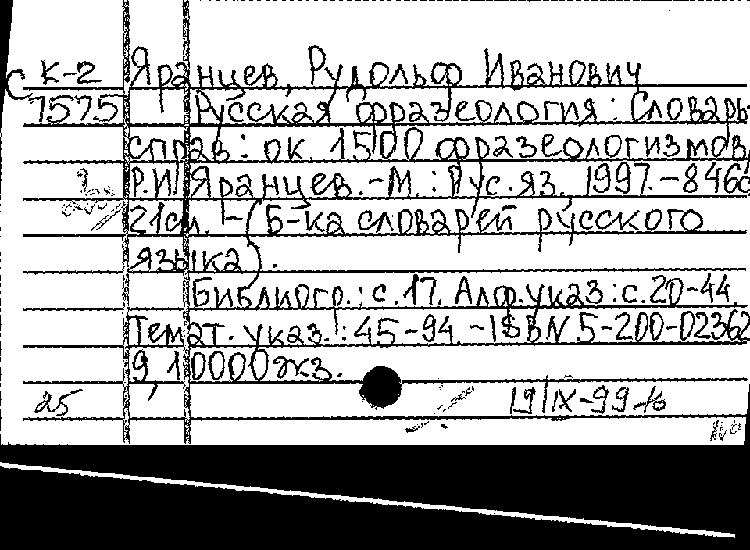 С К-2 Яранцев, Рудольф Иванович
7575 Русская фразеология: Словарь-
справ: ок. 1500 фразеологизмов/
Р.И. Яранцев.-М.: Рус.яз. 1997.-846с
21см. -(Б-ка словарей русского
языка).
Библиогр.: с.17. Алф.указ:с.20-44.
Темат. указ.: 45-94. -ISBN 5-200-02362
9, 10000экз.
25 19/IX-99